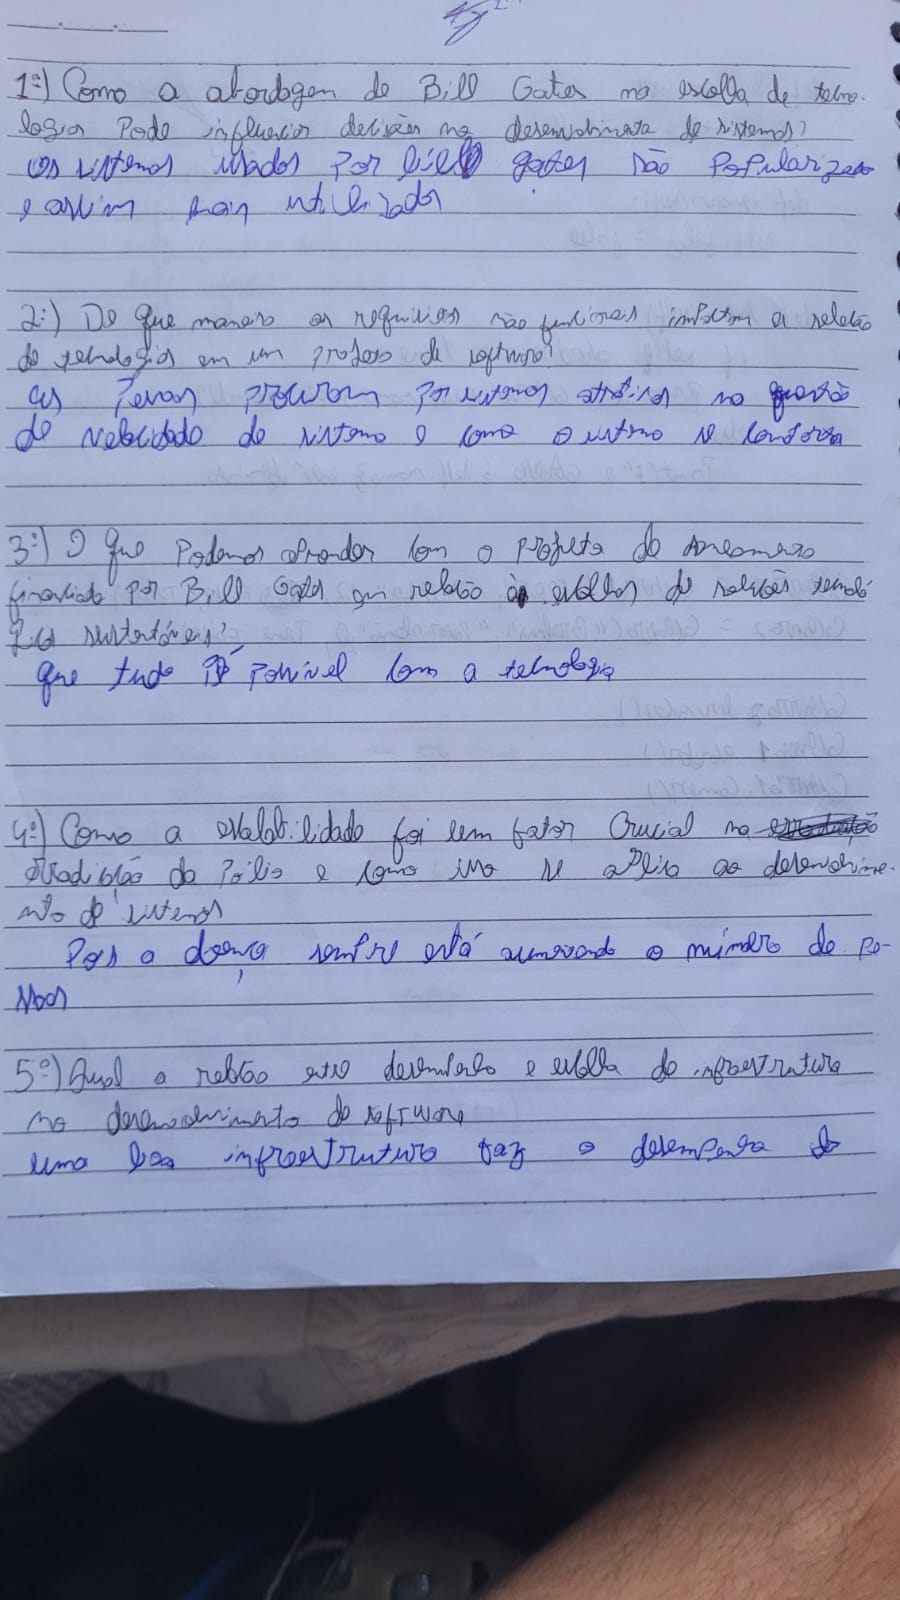 1º) Como a abordagem de Bill Gates na escolha de tecno-
logias Pode influenciar decisões no desenvolvimento de sistemas?
os sistemas usados Por bill gates são Popularizado
e assim mais utilizados
2º) De que maneira os requisitos não funcionais impactam a seleção
de tecnologias em um projeto de software?
as Pessoas procuram Por sistemas atrativos na questão
de velocidade do sistema e como o sistema se comporta
3º) O que Podemos aprender com o projeto de saneamento
financiado Por Bill Gates em relação à escolha de soluções tecnoló
gicas sustentáveis?
que tudo é possível com a tecnologia
4º) Como a escalabilidade foi um fator Crucial na
erradicação da Pólio e como isso se aplica ao desenvolvime-
nto de sistemas
Pois a doença sempre está aumentando o número de pe-
ssoas
5º) Qual a relação entre desempenho e escolha de infraestrutura
no desenvolvimento de software
uma boa infraestrutura faz o desempenho do